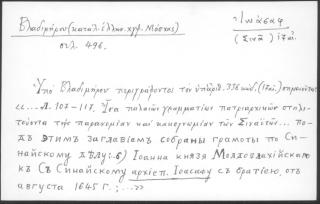 Βλαδιμήρου (κατάλ. ἑλλην. χφφ. Μόσχας)
σελ. 496.
Ἰωάσαφ
(Σινᾶ) ιζ΄ αἰ.
Ὑπὸ Βλαδιμήρου περιγράφοντος τὸν ὑπ' ἀριθ. 336 κώδ. (ιζ΄ αἰ.) σημειοῦται:
«... Л. 107-117. Ἴσα παλαιῶν γραμμάτων πατριαρχικῶν στηλι-
τεύοντα τὴν παρανομίαν καὶ κακογνωμίαν τῶν Σιναϊτῶν... по-
дъ этимъ заглавіемъ собраны грамоты по Си-
найскому дѣлу: б) Іоанна князя Молдовлахійскаго
къ Синайскому архіеп. Іоасафу съ братіею, отъ
августа 1645 г.; ...»